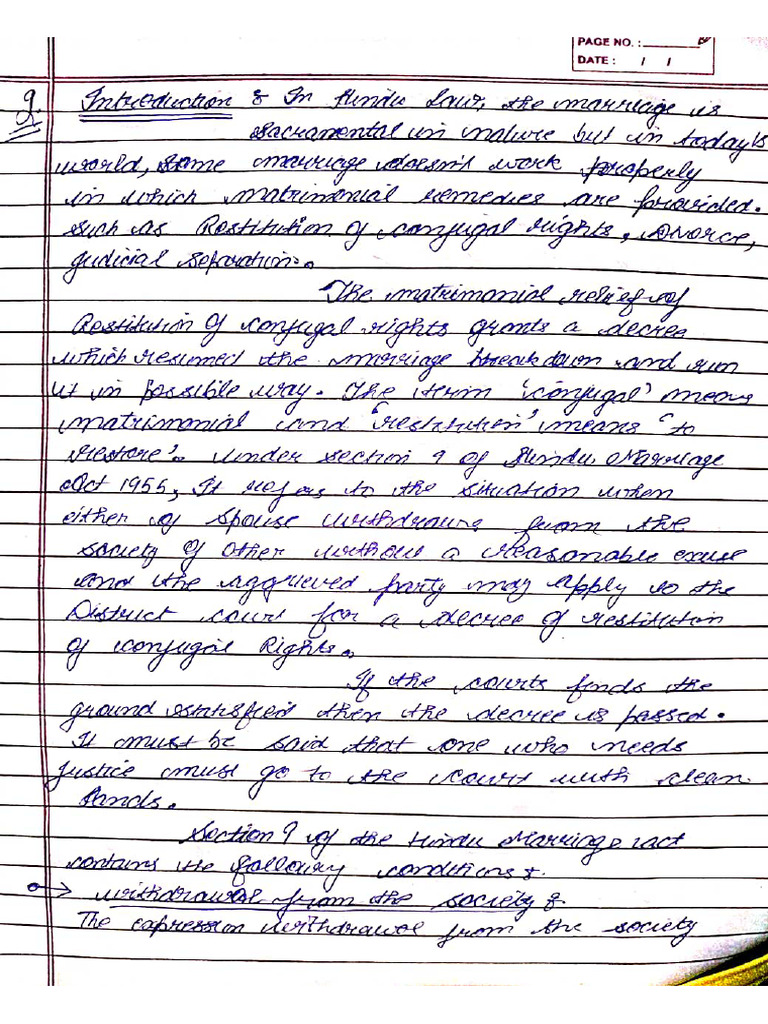 PAGE NO. :
DATE : / /
9. Introduction :- In Hindu Law, the marriage is
Sacramental in nature but in today's
world, some marriage doesn't work properly
in which matrimonial remedies are provided.
Such as Restitution of conjugal rights, Divorce,
Judicial Separation.
The matrimonial relief of
Restitution of conjugal rights grants a decree
which resumed the marriage breakdown and run
it in possible way. The term 'conjugal' means
matrimonial and 'restitution' means 'to
restore'. Under section 9 of Hindu Marriage
Act 1955, It refers to the situation when
either of spouse withdraws from the
society of other without a reasonable excuse
and the aggrieved party may apply to the
District court for a decree of restitution
of conjugal Rights.
If the courts finds the
ground satisfied then the decree is passed.
It must be said that one who needs
justice must go to the court with clean
hands.
Section 9 of the Hindu Marriage act
contains the following conditions :-
→ withdrawal from the society :-
The expression withdrawal from the society